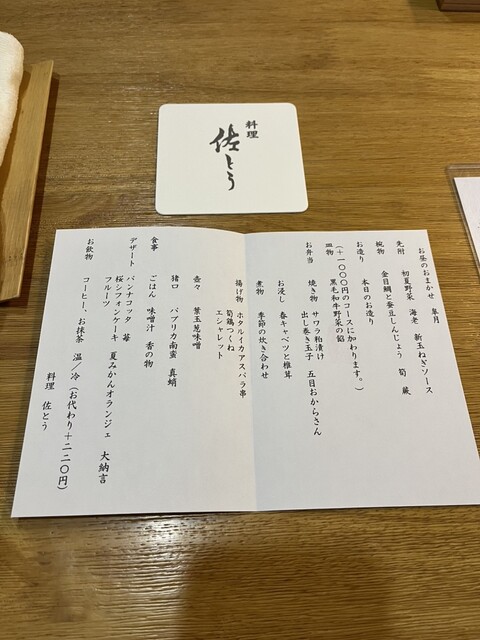 料理
佐とう
お昼のおまかせ 皐月
先附 初夏野菜 海老 新玉ねぎソース
椀物 金目鯛と蚕豆しんじょう 筍 蕨
お造り 本日のお造り
(+一〇〇〇円のコースに加わります。)
皿物 黒毛和牛野菜の餡
お弁当 焼き物 サワラ粕漬け
出し巻き玉子 五目おからさん
お浸し 春キャベツと椎茸
煮物 季節の炊き合わせ
揚げ物 ホタルイカアスパラ串
筍鶏つくね
エシャレット
壺々 葉玉葱味噌
猪口 パプリカ南蛮 真蛸
食事 ごはん 味噌汁 香の物
デザート パンナコッタ 苺
桜シフォンケーキ 夏みかんオランジェ 大納言
フルーツ
お飲物 コーヒー、お抹茶 温/冷(お代わり+二二〇円)
料理 佐とう